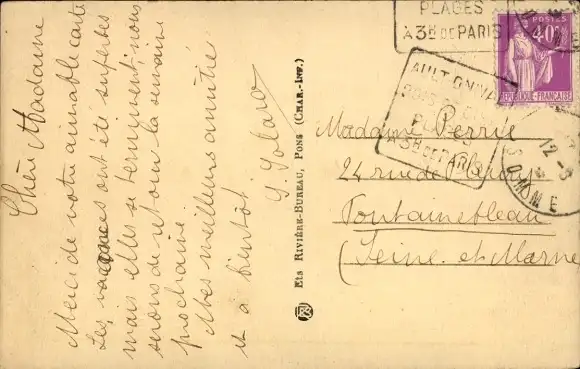 Chère Madame
Merci de votre aimable carte
Les vacances ont été superbes
mais elles se terminent, nous
serons de retour la semaine
prochaine
Mes meilleures amitiés
et à bientôt
Ets RIVIÈRE-BUREAU, PONS (CHAR.-INF.)
PLAGES
À 3H DE PARIS
POSTES
40c
RÉPUBLIQUE FRANÇAISE
AULT ONIVAL
À 3H DE PARIS
12 - 8
SOMME
Madame Perrie
24 rue de
Fontainebleau
(Seine et Marne